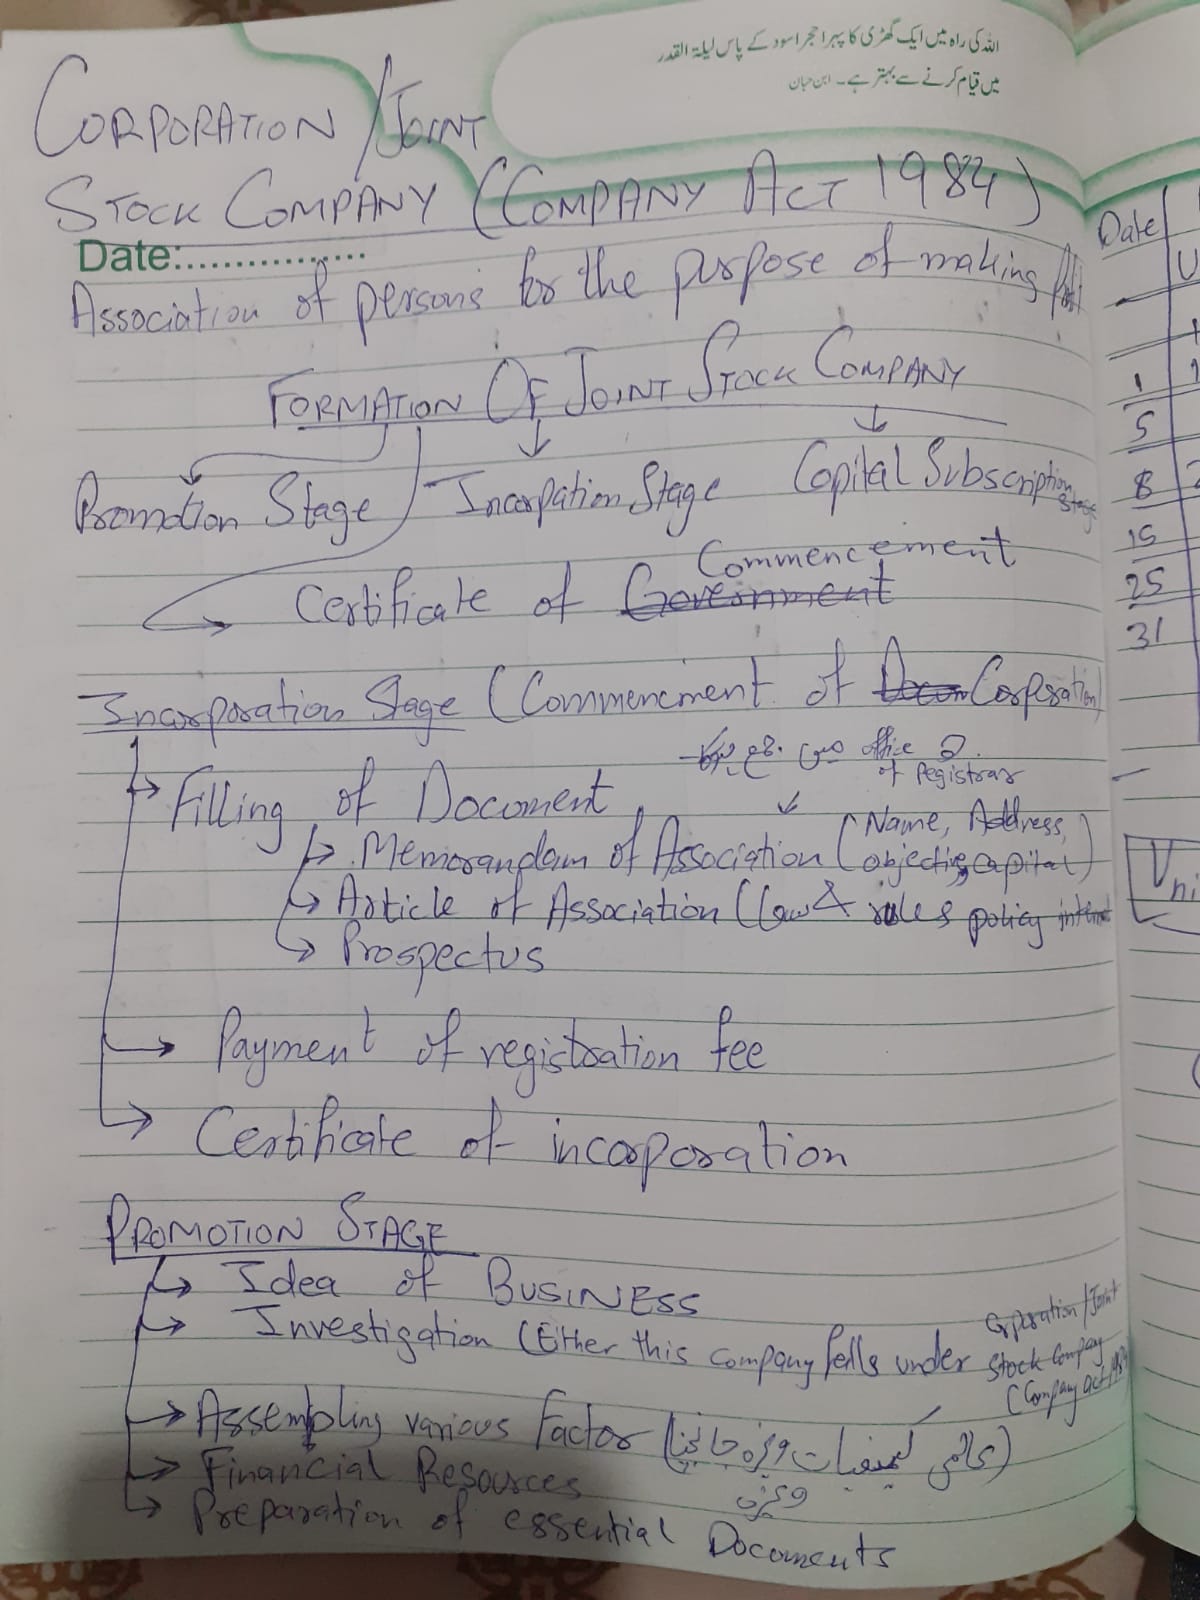 اللہ کی راہ میں ایک گھڑی کا پہرا حجر اسود کے پاس لیلۃ القدر
میں قیام کرنے سے بہتر ہے۔ ابن حبان
CORPORATION / JOINT
STOCK COMPANY (COMPANY ACT 1984)
Date:.................
Association of persons for the purpose of making
FORMATION OF JOINT STOCK COMPANY
Promotion Stage Incorpation Stage Capital Subscription Stage
Commencement
Certificate of Government
Incorporation Stage (Commencment of Corporation)
میں office
of Registrar
Filling of Document
(Name, Address,
Memorandam of Association objective, capital)
Article of Association (law & rules policy
Prospectus
Payment of registration fee
Certificate of incorporation
PROMOTION STAGE
Idea of BUSINESS
Investigation (Either this company falls under Corporation/Joint
Stock Company
(Company act 1984
Assembling various Factor (عالمی کیفیات وغیرہ جانچنا)
Financial Resources
وغیرہ
Preparation of essential Documents
Date
1
5
8
15
25
31
Uni